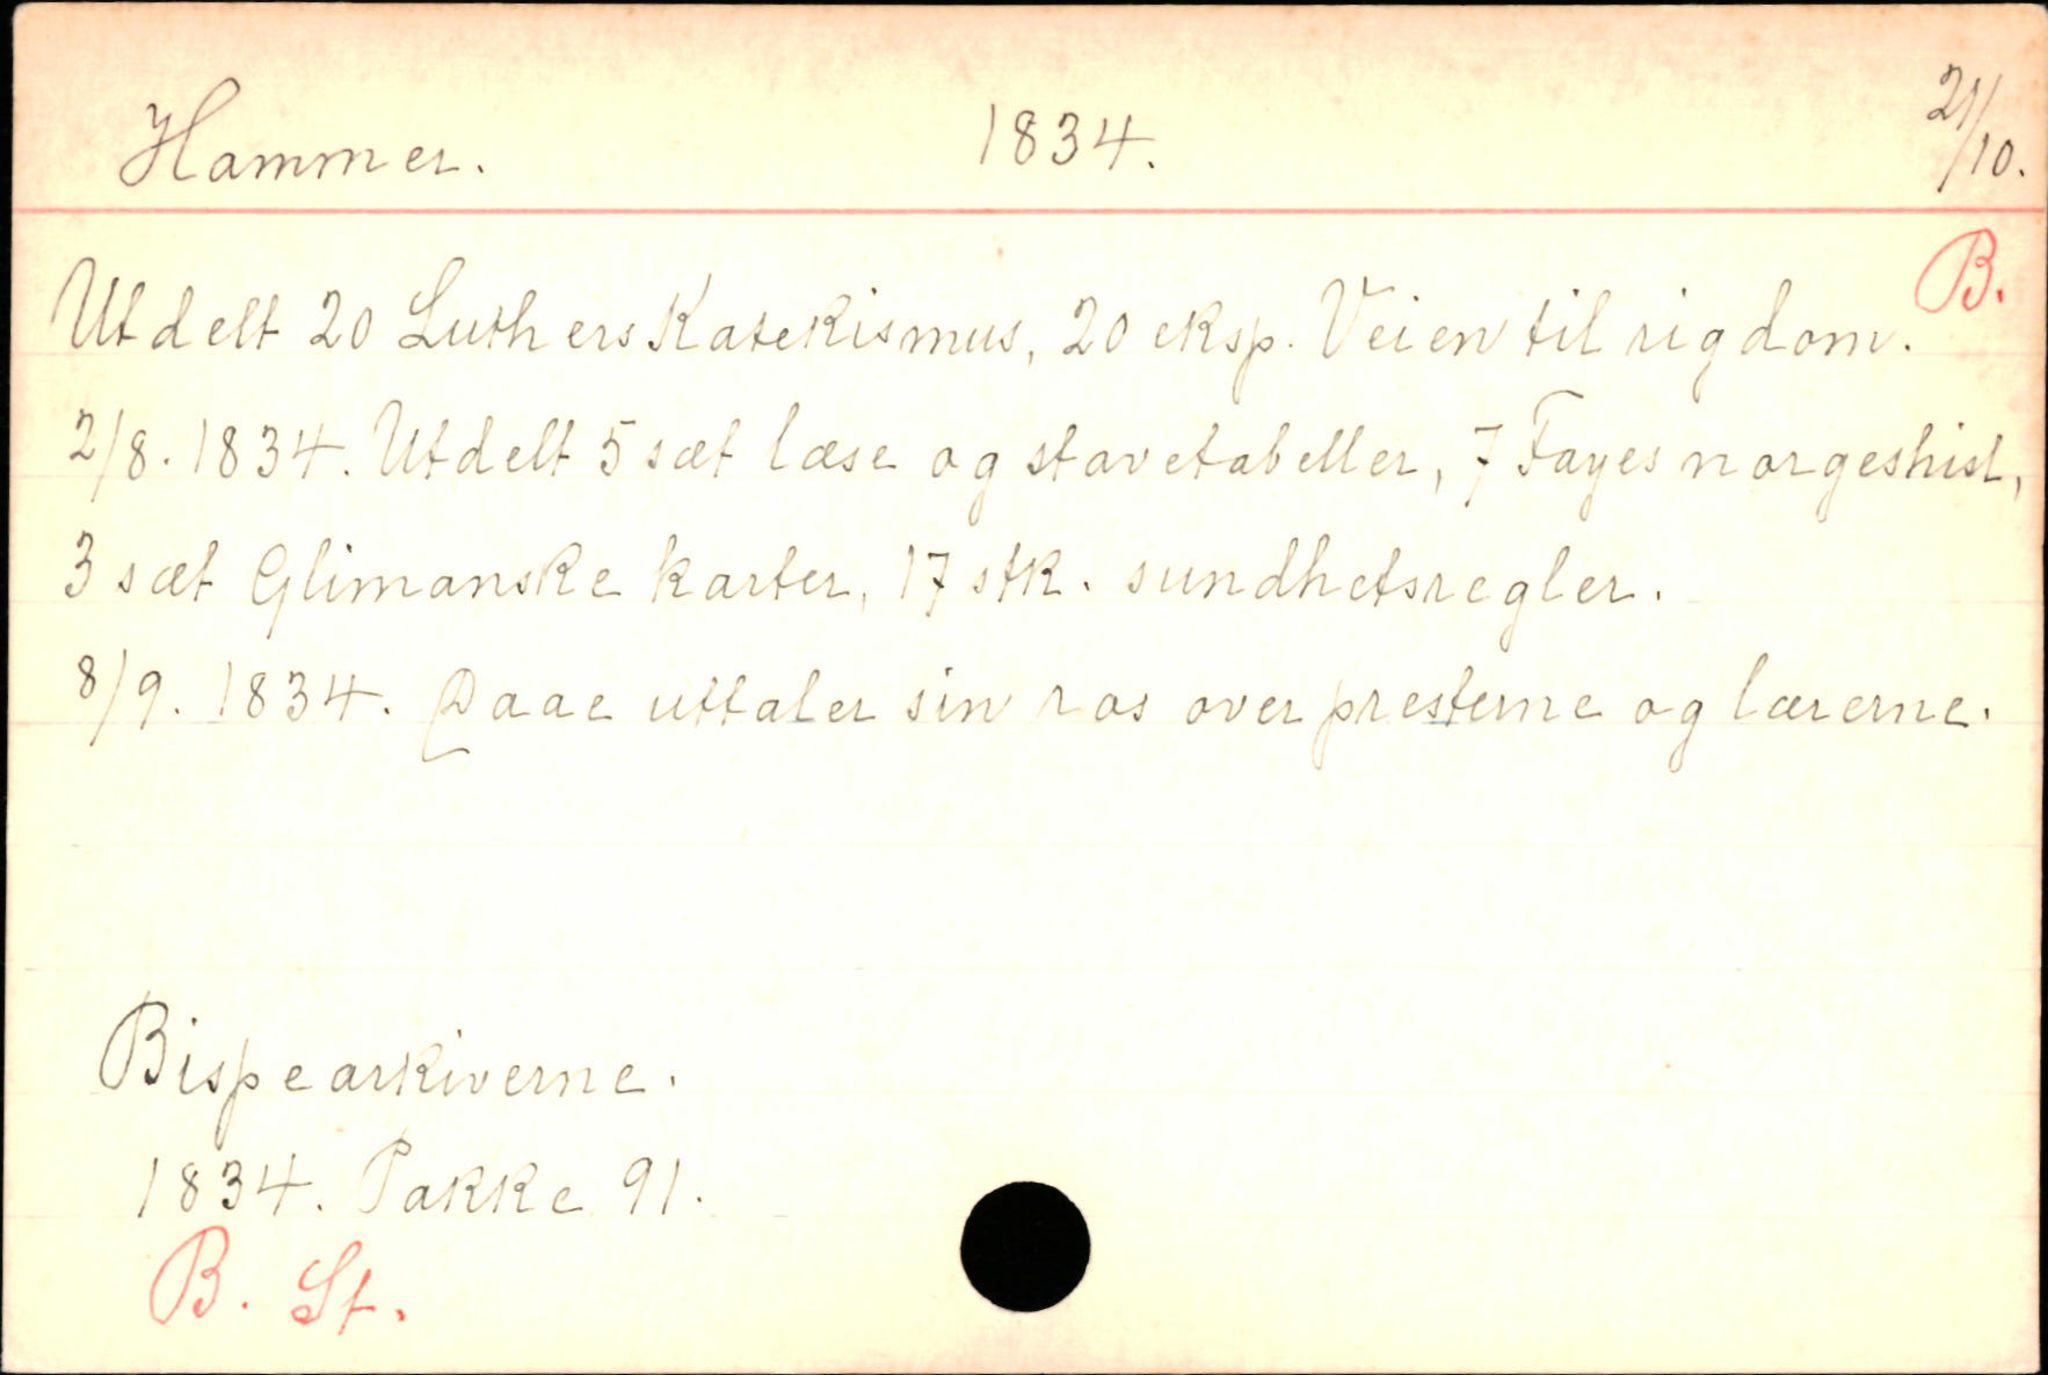 Hammer. 1834. 21/10.
B.
Utdelt 20 Luthers Katekismus, 20 eksp. Veien til rigdom.
2/8. 1834. Utdelt 5 sæt læse og stavetabeller, 7 Fayes norgeshist,
3 sæt Glimanske karter, 17 stk. sundhetsregler.
8/9. 1834. Daae uttaler sin ros over presterne og lærerne.
Bispearkiverne.
1834. Pakke 91.
B. St.